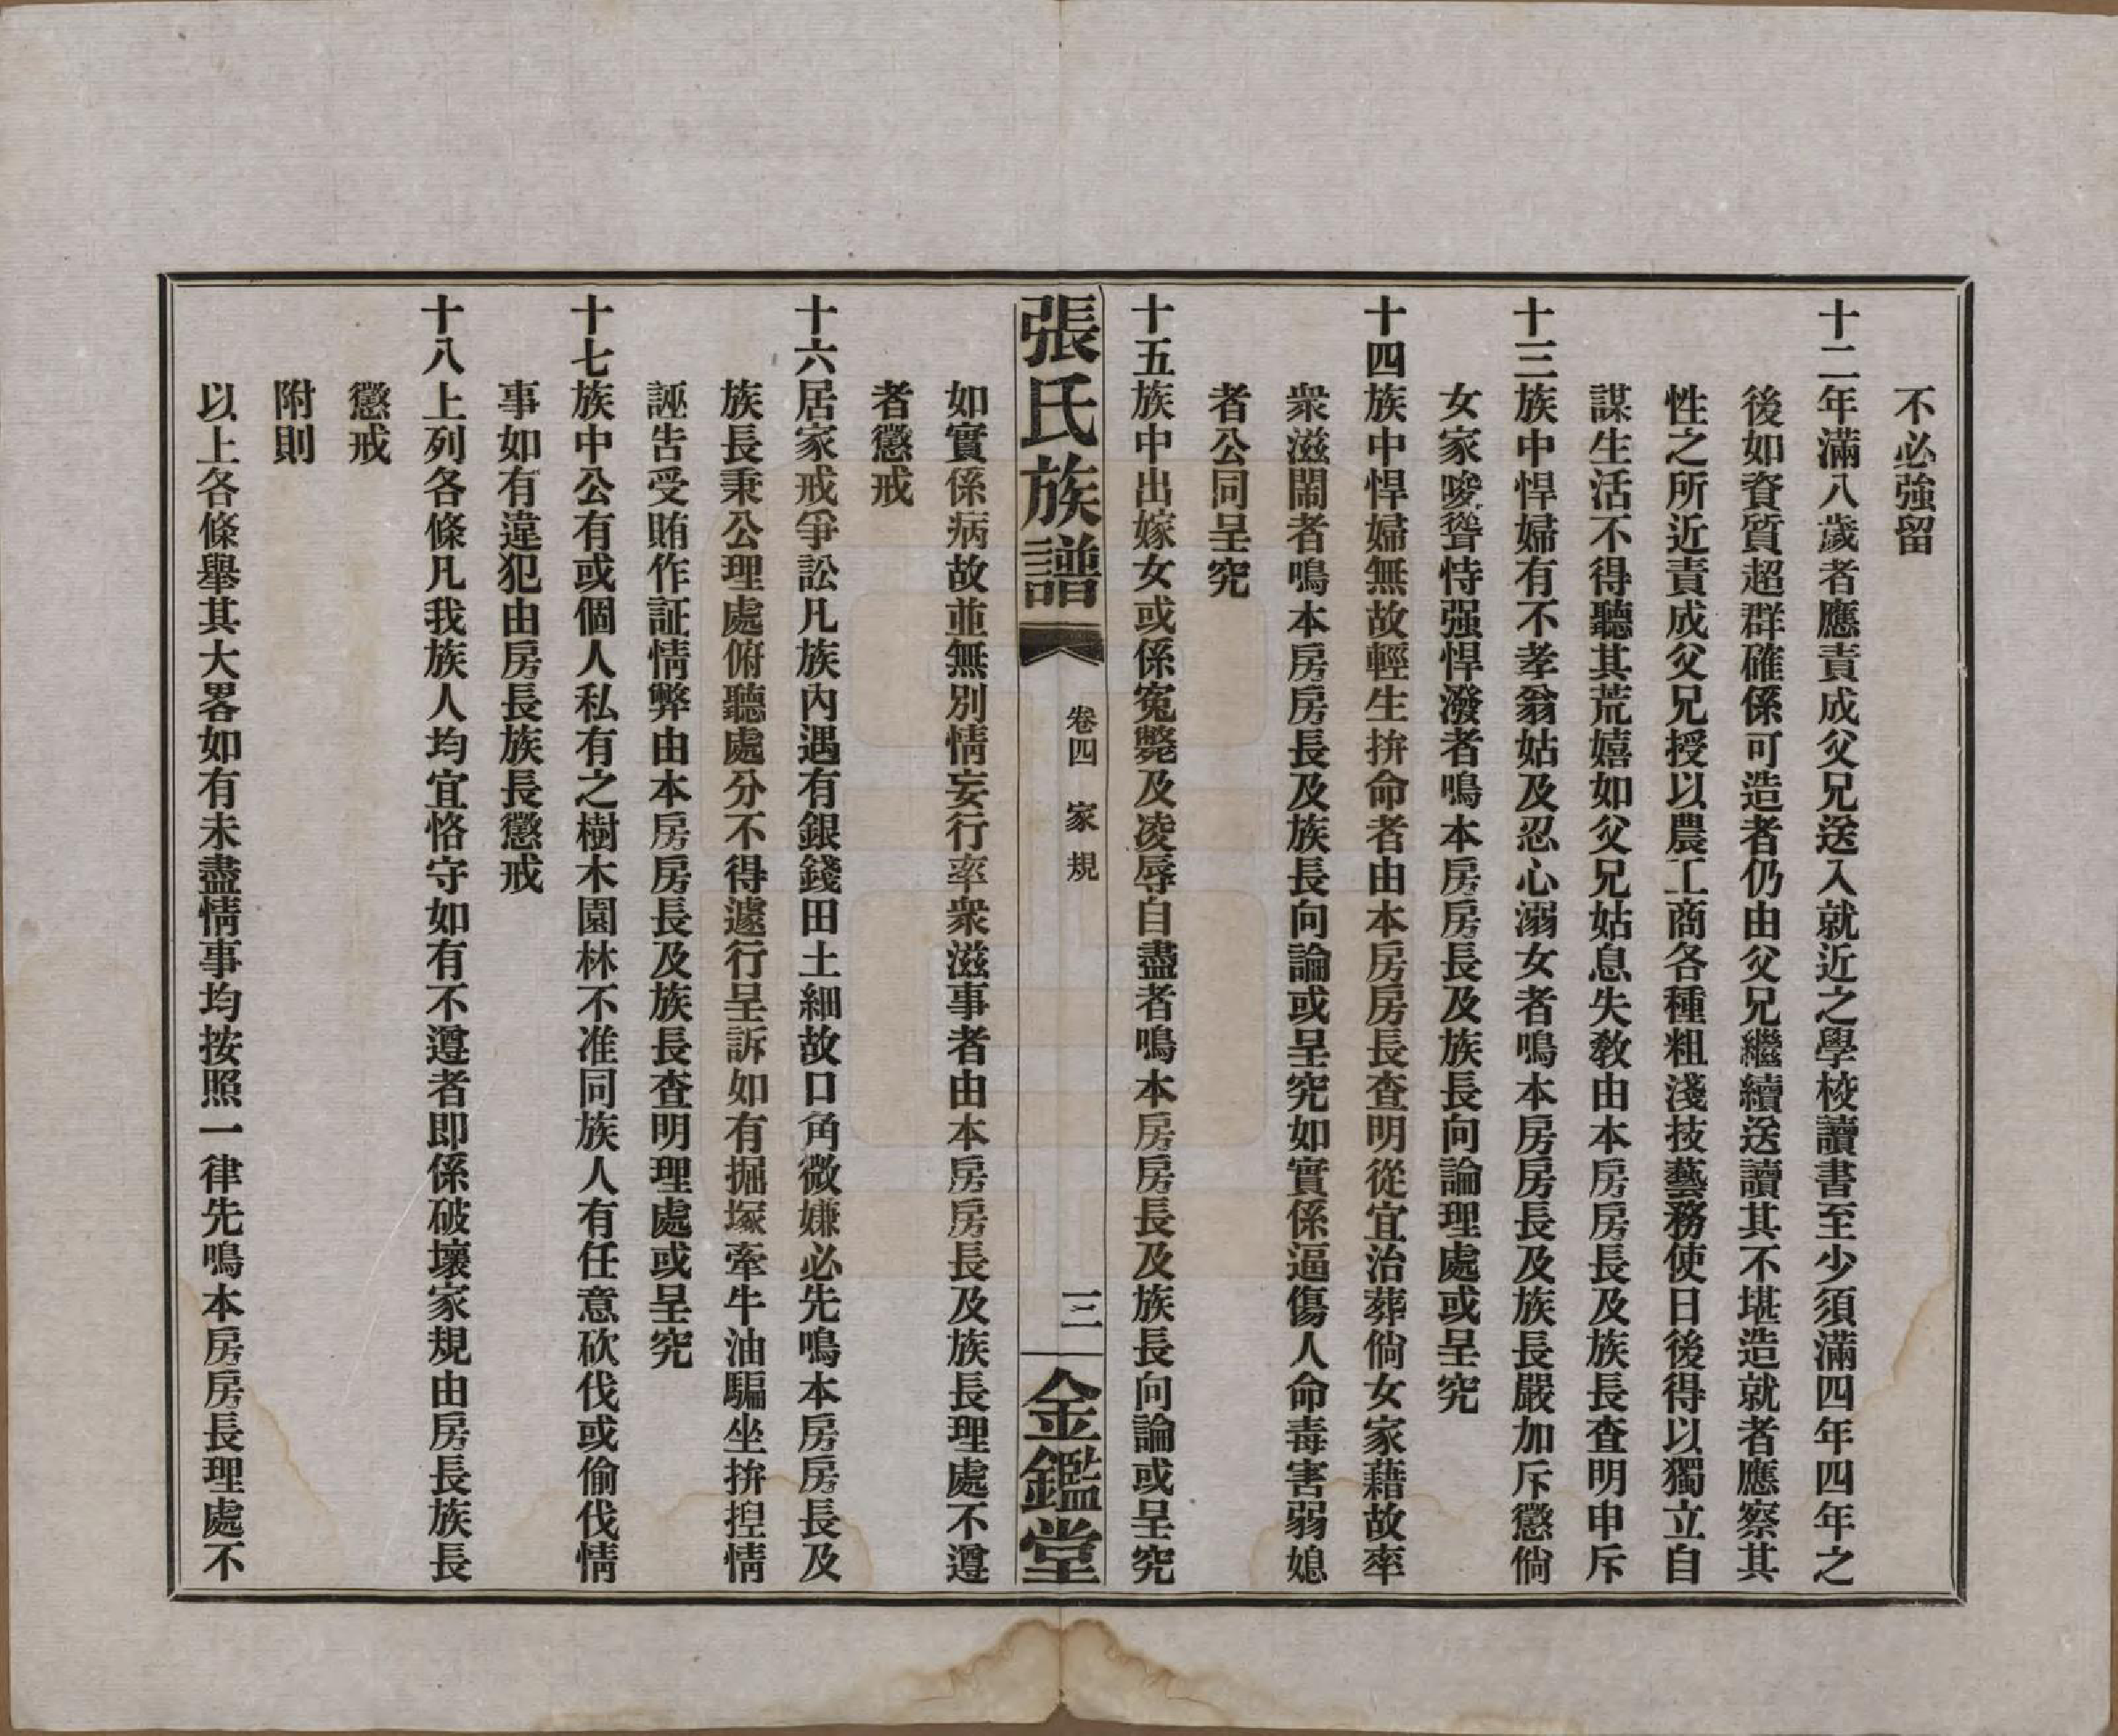 不必強留
十二年滿八歲者應責成父兄送入就近之學校讀書至少須滿四年四年之
後如資質超群確係可造者仍由父兄繼續送讀其不堪造就者應察其
性之所近責成父兄授以農工商各種粗淺技藝務使日後得以獨立自
謀生活不得聽其荒嬉如父兄姑息失教由本房房長及族長查明申斥
十三族中悍婦有不孝翁姑及忍心溺女者鳴本房房長及族長嚴加斥懲倘
女家唆聳恃强悍潑者鳴本房房長及族長向論理處或呈究
十四族中悍婦無故輕生拚命者由本房房長查明從宜治葬倘女家藉故率
衆滋鬧者鳴本房房長及族長向論或呈究如實係逼傷人命毒害弱媳
者公同呈究
十五族中出嫁女或係寃斃及凌辱自盡者鳴本房房長及族長向論或呈究
張氏族譜 卷四 家規 三 金鑑堂
如實係病故並無別情妄行率衆滋事者由本房房長及族長理處不遵
者懲戒
十六居家戒爭訟凡族內遇有銀錢田土細故口角微嫌必先鳴本房房長及
族長秉公理處俯聽處分不得遽行呈訴如有掘塚牽牛油騙坐拚揑情
誣告受賄作証情弊由本房房長及族長查明理處或呈究
十七族中公有或個人私有之樹木園林不准同族人有任意砍伐或偷伐情
事如有違犯由房長族長懲戒
十八上列各條凡我族人均宜恪守如有不遵者即係破壞家規由房長族長
懲戒
附則
以上各條舉其大畧如有未盡情事均按照一律先鳴本房房長理處不